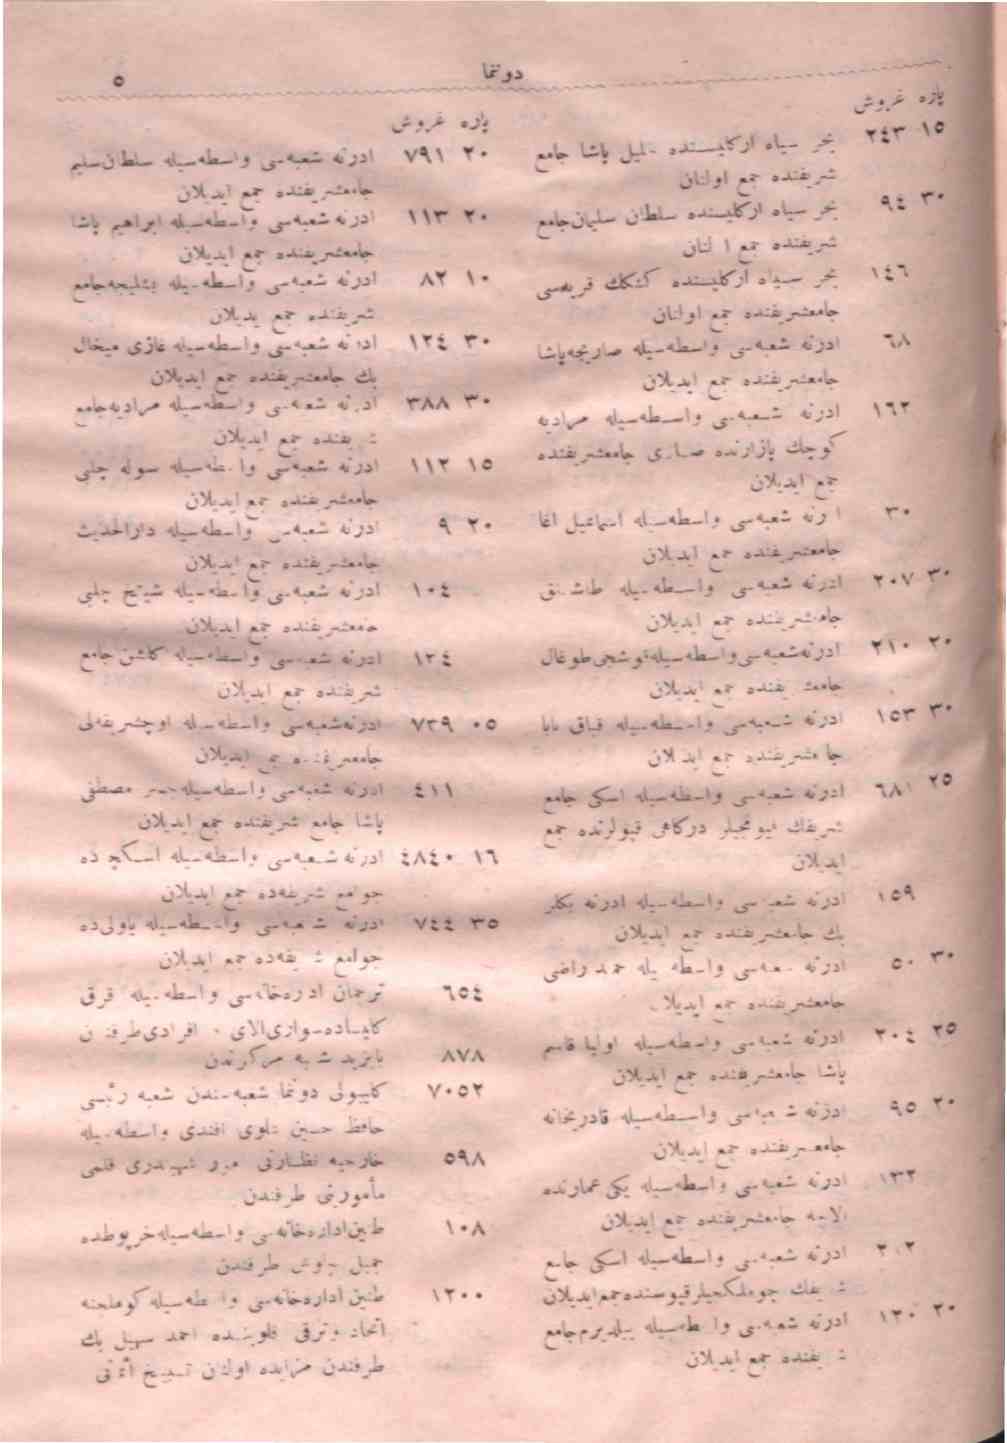 دوننما
٥
پاره غروش
١٥ ٢٤٣ بحر سياه اركليسنده خليل پاشا جامع
شريفنده جمع اولنان
٣٠ ٩٤ بحر سياه اركليسنده سلطان سليمان جامع
شريفنده جمع ا لنان
١٤٦ بحر سياه اركليسنده كشكك قريه‌سى
جامعشريفنده جمع اولنان
٦٨ ادرنه شعبه‌سى واسطه‌سيله صاريجه‌پاشا
جامعشريفنده جمع ايديلان
١٦٢ ادرنه شعبه‌سى واسطه‌سيله مراديه
كوچك پازارنده صارى جامعشريفنده
جمع ايديلان
٣٠ ادرنه شعبه‌سى واسطه‌سيله اسماعيل اغا
جامعشريفنده جمع ايديلان
٣٠ ٢٠٧ ادرنه شعبه‌سى واسطه‌سيله طاشلق
جامعشريفنده جمع ايديلان
٢٠ ٢١٠ ادرنه شعبه‌سى واسطه‌سيله قوشجى طوغان
جامعشريفنده جمع ايديلان
٣٠ ١٥٣ ادرنه شعبه‌سى واسطه‌سيله قباق بابا
جامعشريفنده جمع ايديلان
٢٥ ٦٨١ ادرنه شعبه‌سى واسطه‌سيله اسكى جامع
شريفك قيومجيلر دركاهى قپولرنده جمع
ايديلان
١٥٩ ادرنه شعبه‌سى واسطه‌سيله ادرنه بكلر
بك جامعشريفنده جمع ايديلان
٣٠ ٥٠ ادرنه شعبه‌سى واسطه‌سيله راضى
جامعشريفنده جمع ايديلان
٢٥ ٣٠٤ ادرنه شعبه‌سى واسطه‌سيله اوليا قاسم
پاشا جامعشريفنده جمع ايديلان
٢٠ ٩٥ ادرنه شعبه‌سى واسطه‌سيله قادريخانه
جامعشريفنده جمع ايديلان
١٣٢ ادرنه شعبه‌سى واسطه‌سيله يكى عمارتده
جامعشريفنده جمع ايديلان
ادرنه شعبه‌سى واسطه‌سيله اسكى جامع
شريفك چوملكجيلر قپوسنده جمع ايديلان
٢٠ ١٢٠ ادرنه شعبه‌سى واسطه‌سيله ييلديرم جامع
شريفنده جمع ايديلان
پاره غروش
٢٠ ٧٩١ ادرنه شعبه‌سى واسطه‌سيله سلطان سليم
جامعشريفنده جمع ايديلان
٢٠ ١١٣ ادرنه شعبه‌سى واسطه‌سيله ابراهيم پاشا
جامعشريفنده جمع ايديلان
١٠ ٨٢ ادرنه شعبه‌سى واسطه‌سيله جامع
شريفنده جمع ايديلان
٣٠ ١٢٤ ادرنه شعبه‌سى واسطه‌سيله غازى ميخال
بك جامعشريفنده جمع ايديلان
٣٠ ٣٨٨ ادرنه شعبه‌سى واسطه‌سيله مراديه جامع
شريفنده جمع ايديلان
١٥ ١١٢ ادرنه شعبه‌سى واسطه‌سيله سوله چلبى
جامعشريفنده جمع ايديلان
٢٠ ٩ ادرنه شعبه‌سى واسطه‌سيله دارالحديث
جامعشريفنده جمع ايديلان
١٠٤ ادرنه شعبه‌سى واسطه‌سيله شيخ چلبى
جامعشريفنده جمع ايديلان
١٢٤ ادرنه شعبه‌سى واسطه‌سيله كلشن جامع
شريفنده جمع ايديلان
٠٥ ٧٣٩ ادرنه شعبه‌سى واسطه‌سيله اوچشريفه‌لى
جامعشريفنده جمع ايديلان
٤١١ ادرنه شعبه‌سى واسطه‌سيله جسر مصطفى
پاشا جامع شريفنده جمع ايديلان
١٦ ٤٨٤٠ ادرنه شعبه‌سى واسطه‌سيله اسكچه ده
جوامع شريفه‌ده جمع ايديلان
٣٥ ٧٤٤ ادرنه شعبه‌سى واسطه‌سيله ياولى‌ده
جوامع شريفه‌ده جمع ايديلان
٦٥٤ ترجمان اداره‌خانه‌سى واسطه‌سيله قرق
كليساده سوارى آلاى افرادى طرفندن
٨٧٨ بايزيد شعبه مركزندن
٧٠٥٢ كليبولى دوننما شعبه‌سندن شعبه رئيسى
حافظ حسين علوى افندى واسطه‌سيله
٥٩٨ خارجيه نظارتى امور شهبندرى قلمى
مأمورينى طرفندن
١٠٨ طنين اداره‌خانه‌سى واسطه‌سيله خرپوطده
جميل چاوش طرفندن
١٢٠٠ طنين اداره‌خانه‌سى واسطه‌سيله كوملجنه
اتحاد وترقى قلوبنده احمد سهيل بك
طرفندن مزايده اولنان